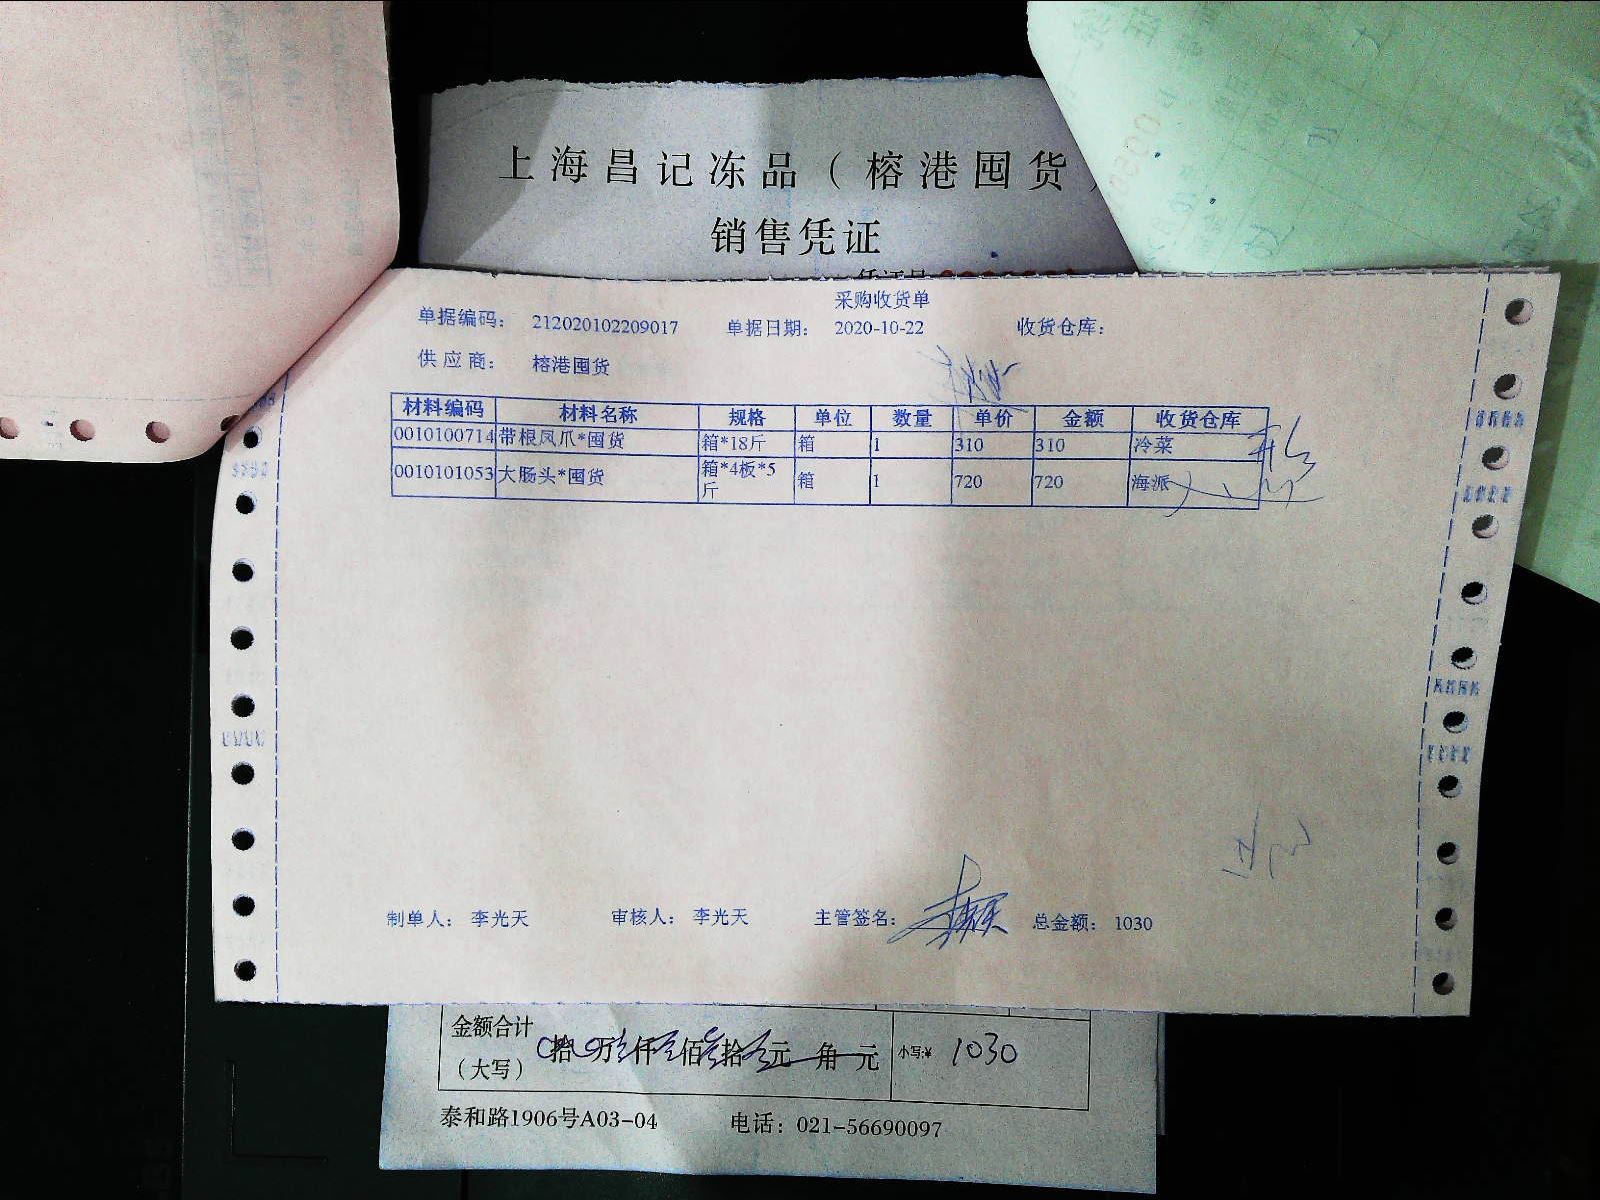 上海昌记冻品（榕港囤货）
销售凭证
采购收货单
单据编码： 212020102209017 单据日期： 2020-10-22 收货仓库：
供应商： 榕港囤货
材料编码 材料名称 规格 单位 数量 单价 金额 收货仓库
0010100714 带根凤爪*囤货 箱*18斤 箱 1 310 310 冷菜
0010101053 大肠头*囤货 箱*4板*5斤 箱 1 720 720 海派
制单人： 李光天 审核人： 李光天 主管签名： 总金额： 1030
金额合计（大写） 拾 万 仟 佰 拾 元 角 元 小写:¥ 1030
泰和路1906号A03-04 电话：021-56690097